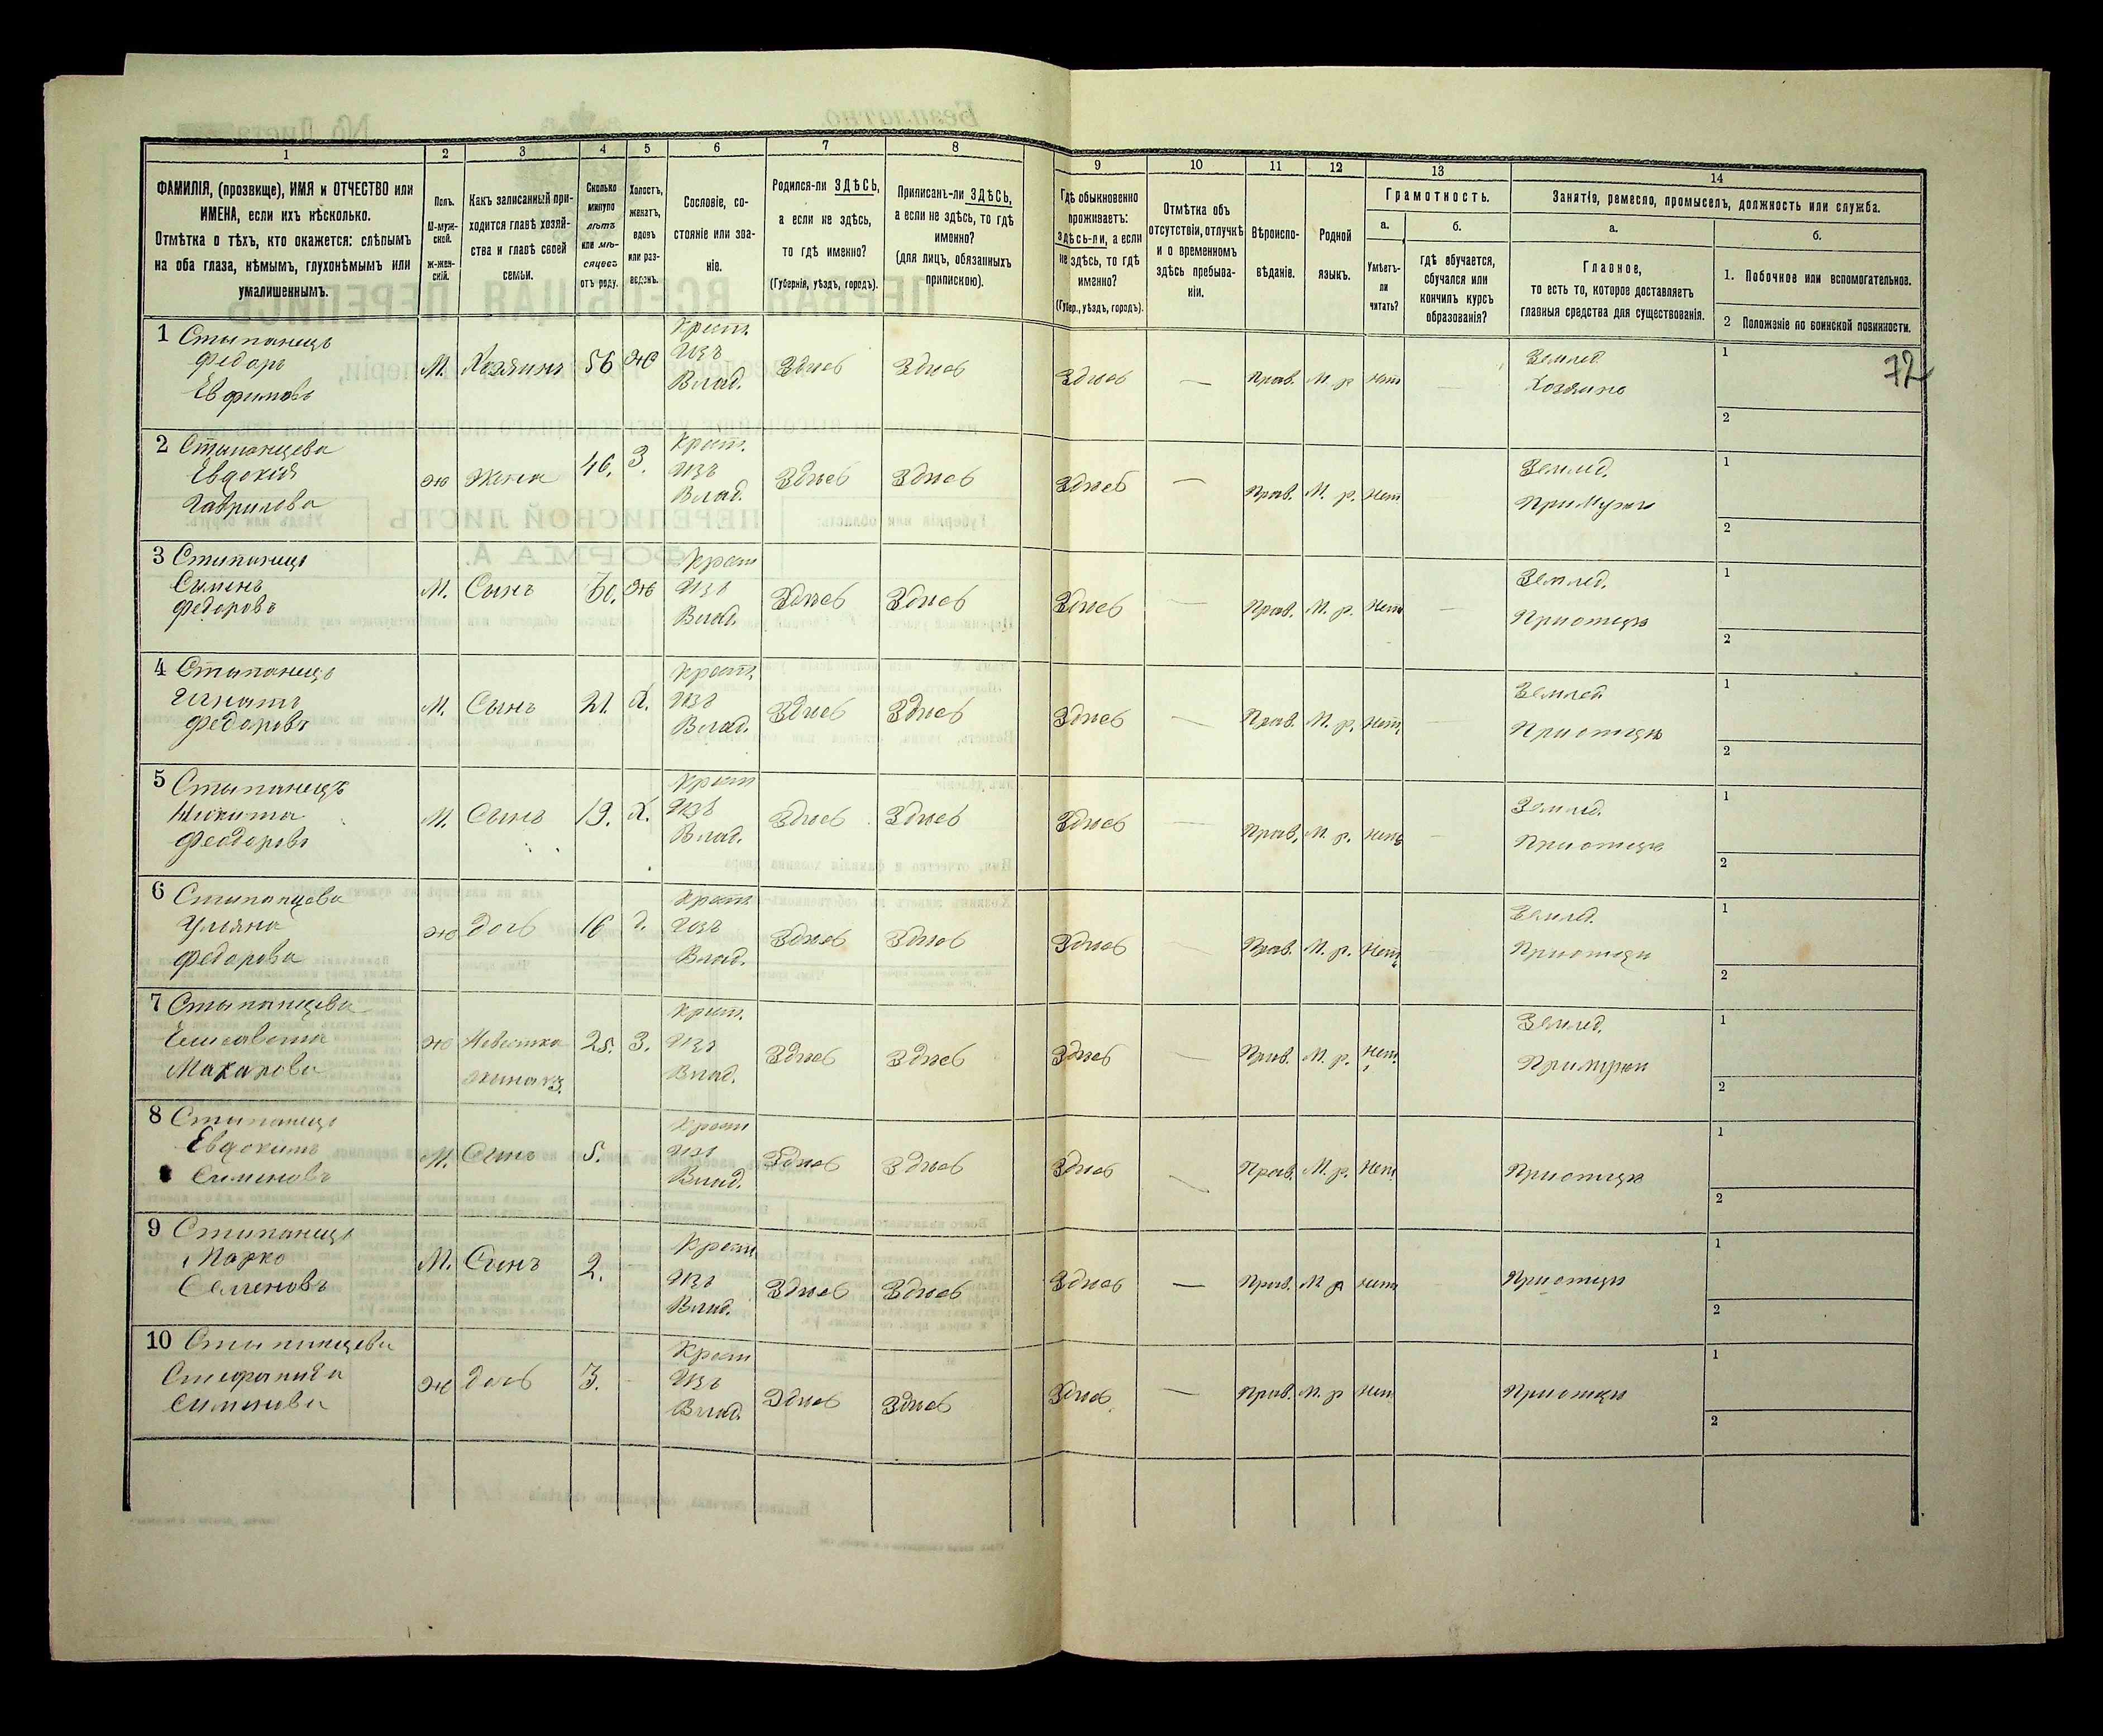 1 2 3 4 5 6 7 8 9 10 11 12 13 14
ФАМИЛІЯ, (прозвище), ИМЯ и ОТЧЕСТВО или
ИМЕНА, если ихъ нѣсколько.
Отмѣтка о тѣхъ, кто окажется: слѣпымъ
на оба глаза, нѣмымъ, глухонѣмымъ или
умалишеннымъ.
Полъ.
М-муж-
ской.
ж-жен-
скій.
Какъ записанный при-
ходится главѣ хозяй-
ства и главѣ своей
семьи.
Сколько
минуло
лѣтъ
или мѣ-
сяцевъ
отъ роду.
Холостъ,
женатъ,
вдовъ
или раз-
веденъ.
Сословіе, со-
стояніе или зва-
ніе.
Родился-ли ЗДѢСЬ,
а если не здѣсь,
то гдѣ именно?
(Губернія, уѣздъ, городъ).
Приписанъ-ли ЗДѢСЬ,
а если не здѣсь, то гдѣ
именно?
(для лицъ, обязанныхъ
припискою).
Гдѣ обыкновенно
проживаетъ:
здѣсь-ли, а если
не здѣсь, то гдѣ
именно?
(Губер., уѣздъ, городъ).
Отмѣтка объ
отсутствіи, отлучкѣ
и о временномъ
здѣсь пребыва-
ніи.
Вѣроиспо-
вѣданіе.
Родной
языкъ.
Грамотность.
а.
Умѣетъ-
ли
читать?
б.
гдѣ обучается,
обучался или
кончилъ курсъ
образованія?
Занятія, ремесло, промыселъ, должность или служба.
а.
Главное,
то есть то, которое доставляетъ
главныя средства для существованія.
б.
1. Побочное или вспомогательное.
2 Положеніе по воинской повинности.
72
1 Стыпанецъ
Федоръ
Евфимовъ
М. Хозяинъ 56 Ж
Крест.
Изъ
Влад.
Здѣсь Здѣсь Здѣсь — Прав. М. р. нѣт
Землед.
Хозяинъ
1
2
2 Стыпанцева
Евдокія
Гаврилова
Ж Жена 46. З.
Крест.
Изъ
Влад.
Здѣсь Здѣсь Здѣсь — Прав. М. р. Нет
Землед.
При Мужѣ
1
2
3 Стыпанецъ
Сименъ
Федоровъ
М. Сынъ 30. Ж
Крест
Изъ
Влад.
Здѣсь Здѣсь Здѣсь — Прав. М. р. Нет
Землед.
При отцѣ
1
2
4 Стыпанецъ
Игнатъ
Федоровъ
М. Сынъ 21. Х.
Крест.
Изъ
Влад.
Здѣсь Здѣсь Здѣсь — Прав. М. р. Нет
Землед.
При отцѣ
1
2
5 Стыпанецъ
Никита
Федоровъ
М. Сынъ 19. Х.
Крест
Изъ
Влад.
Здѣсь Здѣсь Здѣсь — Прав. М. р. Нет
Землед.
При отцѣ
1
2
6 Стыпанцева
Уляна
Федорова
Ж Дочь 16
Крест
Изъ
Влад.
Здѣсь Здѣсь Здѣсь — Прав. М. р. Нет
Землед.
При отцѣ
1
2
7 Стыпанцева
Елисавета
Макарова
Ж Невестка 25. З.
жена
Крест.
Изъ
Влад.
Здѣсь Здѣсь Здѣсь — Прав. М. р. Нет.
Землед.
При мужѣ
1
2
8 Стыпанецъ
Евдокимъ
Сименовъ
М. Сынъ 5.
Крест
Изъ
Влад.
Здѣсь Здѣсь Здѣсь — Прав. М. р. Нет
При отцѣ
1
2
9 Стыпанецъ
Марко
Семеновъ
М. Сынъ 2.
Крест
Изъ
Влад.
Здѣсь Здѣсь Здѣсь — Прав. М. р нет
При отцѣ
1
2
10 Стыпанцева
Симинова
Ж Дочь 3.
Крест
Изъ
Влад.
Здѣсь Здѣсь Здѣсь — Прав. М. р Нет
При отцѣ
1
2